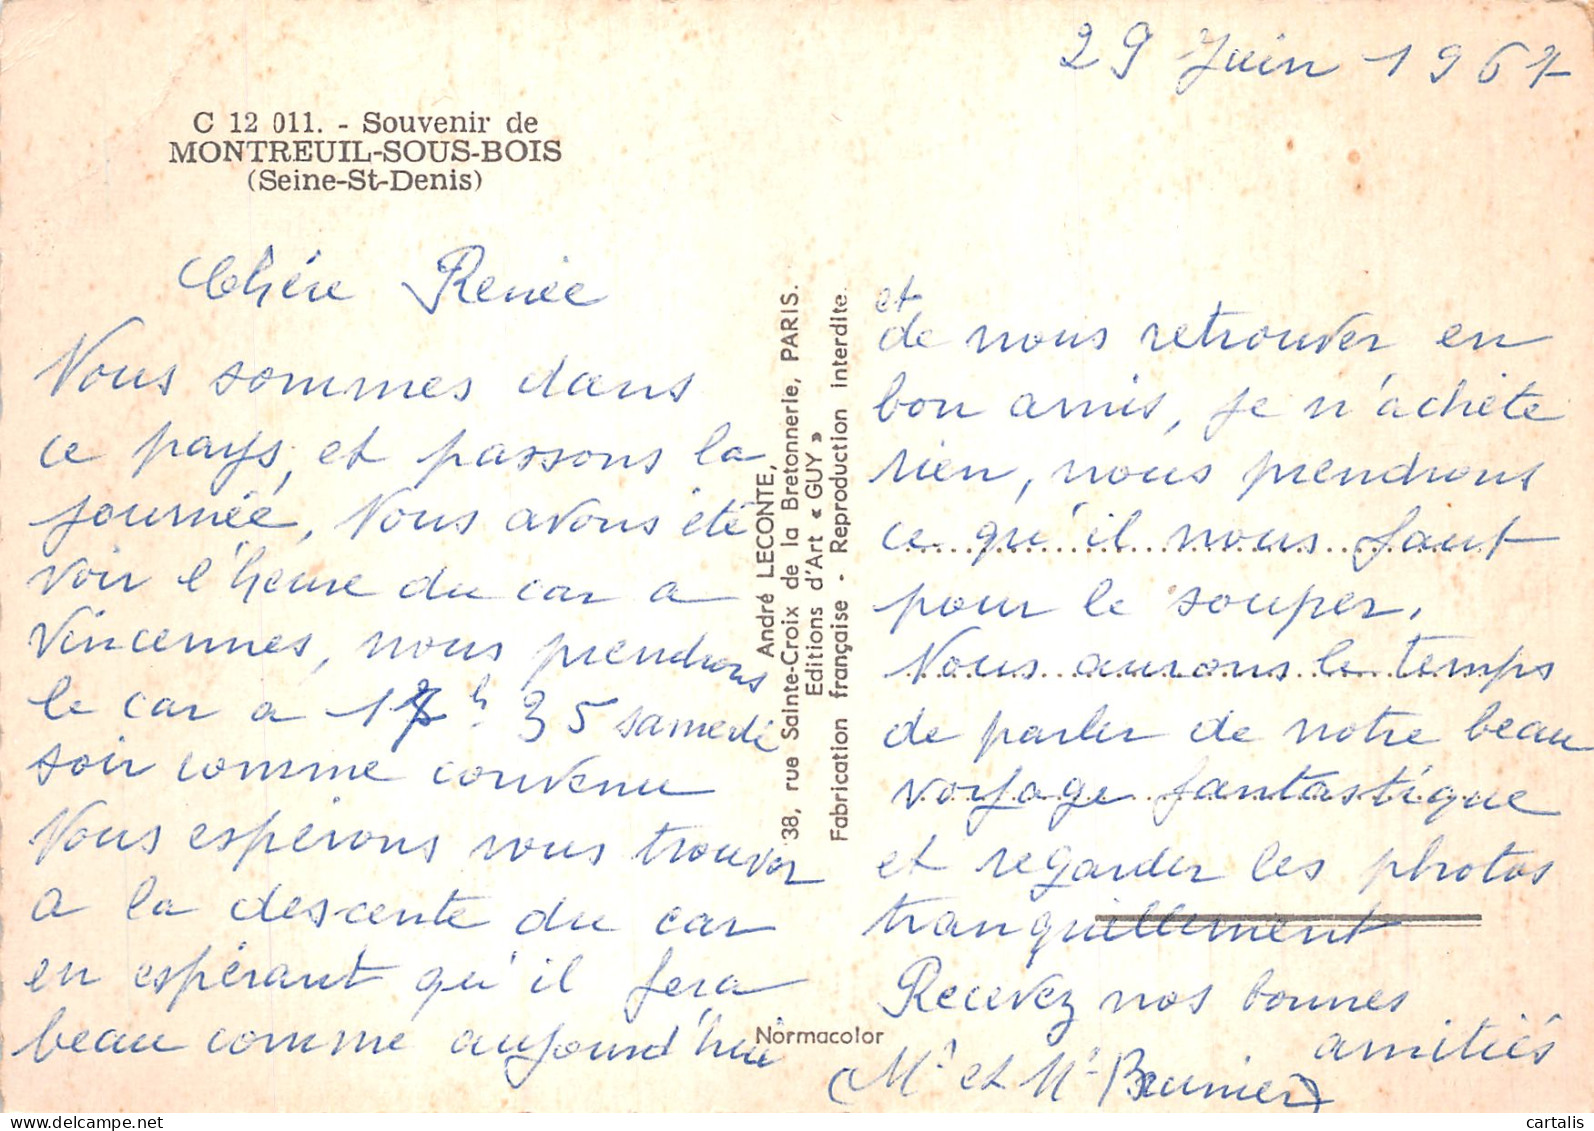 29 Juin 1967
C 12 011. - Souvenir de
MONTREUIL-SOUS-BOIS
(Seine-St-Denis)
Chére Renée
Nous sommes dans
ce pays, et passons la
journée, Nous avons été
voir l'heure du car a
Vincennes, nous prendrons
le car a 17 h 35 samedi
soir comme convenu
Nous espérons vous trouver
a la descente du car
en espérant qu'il fera
beau comme aujourd'hui
André LECONTE,
38, rue Sainte-Croix de la Bretonnerie, PARIS.
Editions d'Art « GUY »
Fabrication française - Reproduction interdite.
Normacolor
et
de nous retrouver en
bon amis, je n'achéte
rien, nous prendrons
ce qu'il nous faut
pour le souper.
Nous aurons le temps
de parler de notre beau
voyage fantastique
et regarder les photos
tranquillement
Recevez nos bonnes
amitiés
(Mr et Me
cartalis
www.delcampe.net